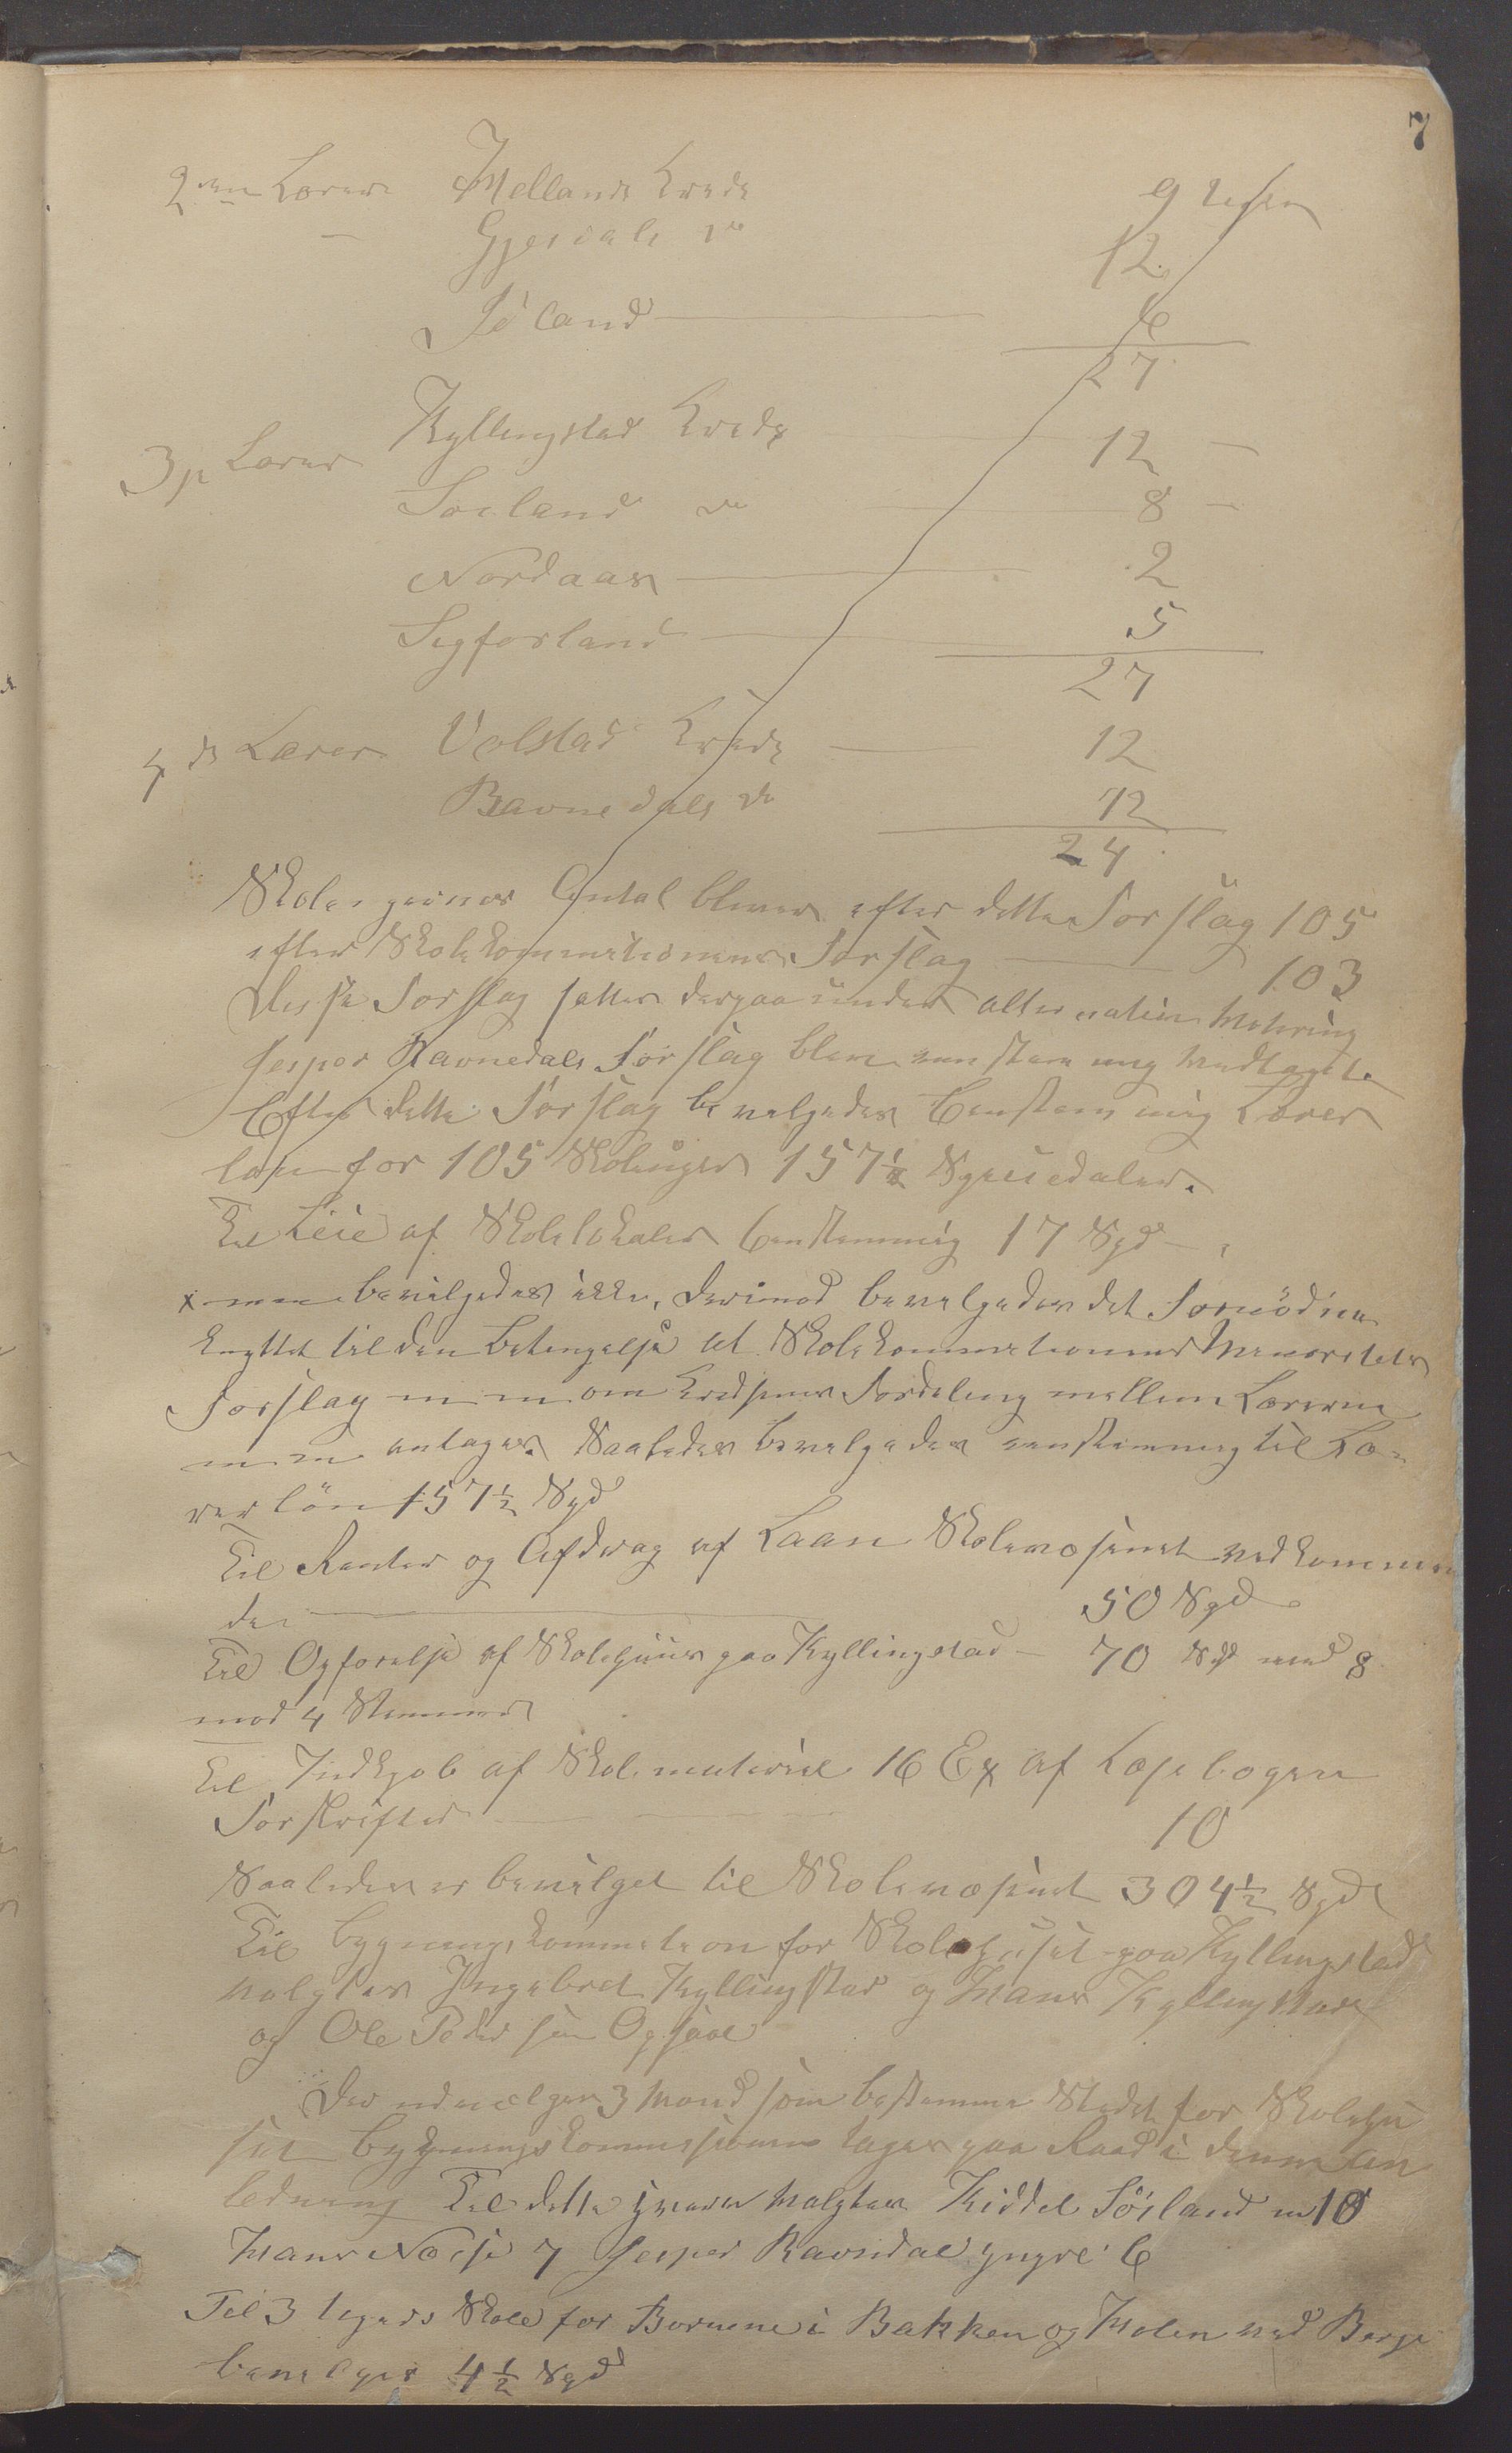 7
2den Lærer Mellands Kreds 9 Uger
Gjesdals do 12
Söland 6
27
3je Lærer Kyllingstad Kreds 12 —
Soeland do 8 —
Nordaas 2
Segforland 5
27
4de Lærer Volstad Kreds 12
Ravnedals do 12
24
Skolegernes Antal bliver efter dette Forslag 105
efter Skolekommitionens Forslag 103
Disse Forslag sattes derpaa under alternativ Votering
Jesper Ravnedals Forslag blev eenstemmig vedtaget.
Efter dette Forslag bevilgedes Eenstemmig Lærer
løn for 105 Skoleuger 157½ Speciedaler.
Til Leie af Skolelokaler Eenstemmig 17 Spd
x men bevilgedes ikke, derimod bevilgedes det Fornödne
knyttet til den Betingelse at Skolekommitionens Menoritets
Forslag m m om Kredsenes Fordeling mellem Lærerne
m m antages. Saaledes bevilgedes eenstemmig til Læ-
rerlön 157½ Spd
Til Renter og Afdrag af Laan Skolevæsenet vedkommen
de 50 Spd
Til Opførelse af Skolehuus paa Kyllingstad — 70 Spd med 8
mod 4 Stemmer
Til Indkjøb af Skolemateriel 16 Ex af Læsebogen
Forskrifter 10
Saaledes er bevilget til Skolevæsenet 304½ Spd
Til Bygningskommetion for Skolehuset paa Kyllingstad
valgtes Ingebret Kyllingstad og Hans Kyllingstad
og Ole Pedersen Opsal
Der udvælges 3 Mænd som bestemme Stedet for Skolehu
set Bygningskommissionen tages paa Raad i denne An
ledning Til dette valgtes Kiddel Söiland m 10
Hans Næse 7 Jesper Ravndal yngre 6
Til 3 Ugers Skole for Børnene i Bakken og Molen ved Berge
bevilges 4½ Spd